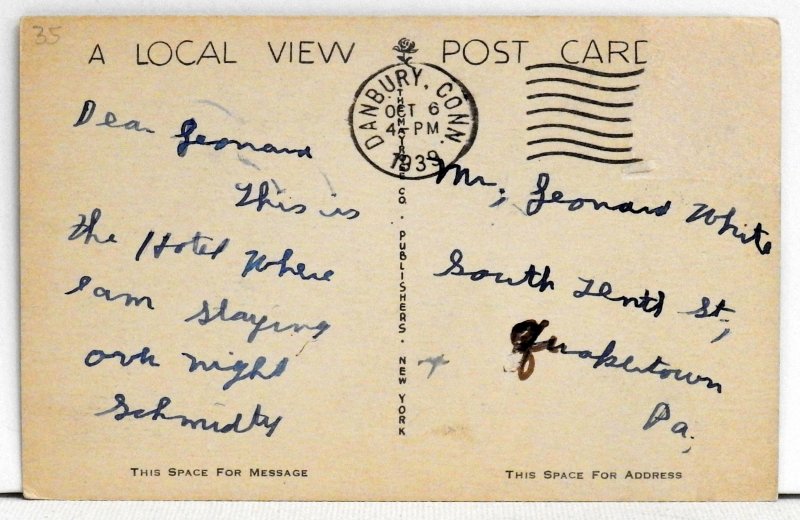 35
A LOCAL VIEW POST CARD
DANBURY, CONN.
OCT 6
4-PM
1939
THE MAYROSE CO. PUBLISHERS. NEW YORK
Dear Leonard
This is
the Hotel Where
I am Staying
ovr night
Schmidty
Mr; Leonard White
South Tenth St,
Quakertown
Pa,
THIS SPACE FOR MESSAGE
THIS SPACE FOR ADDRESS